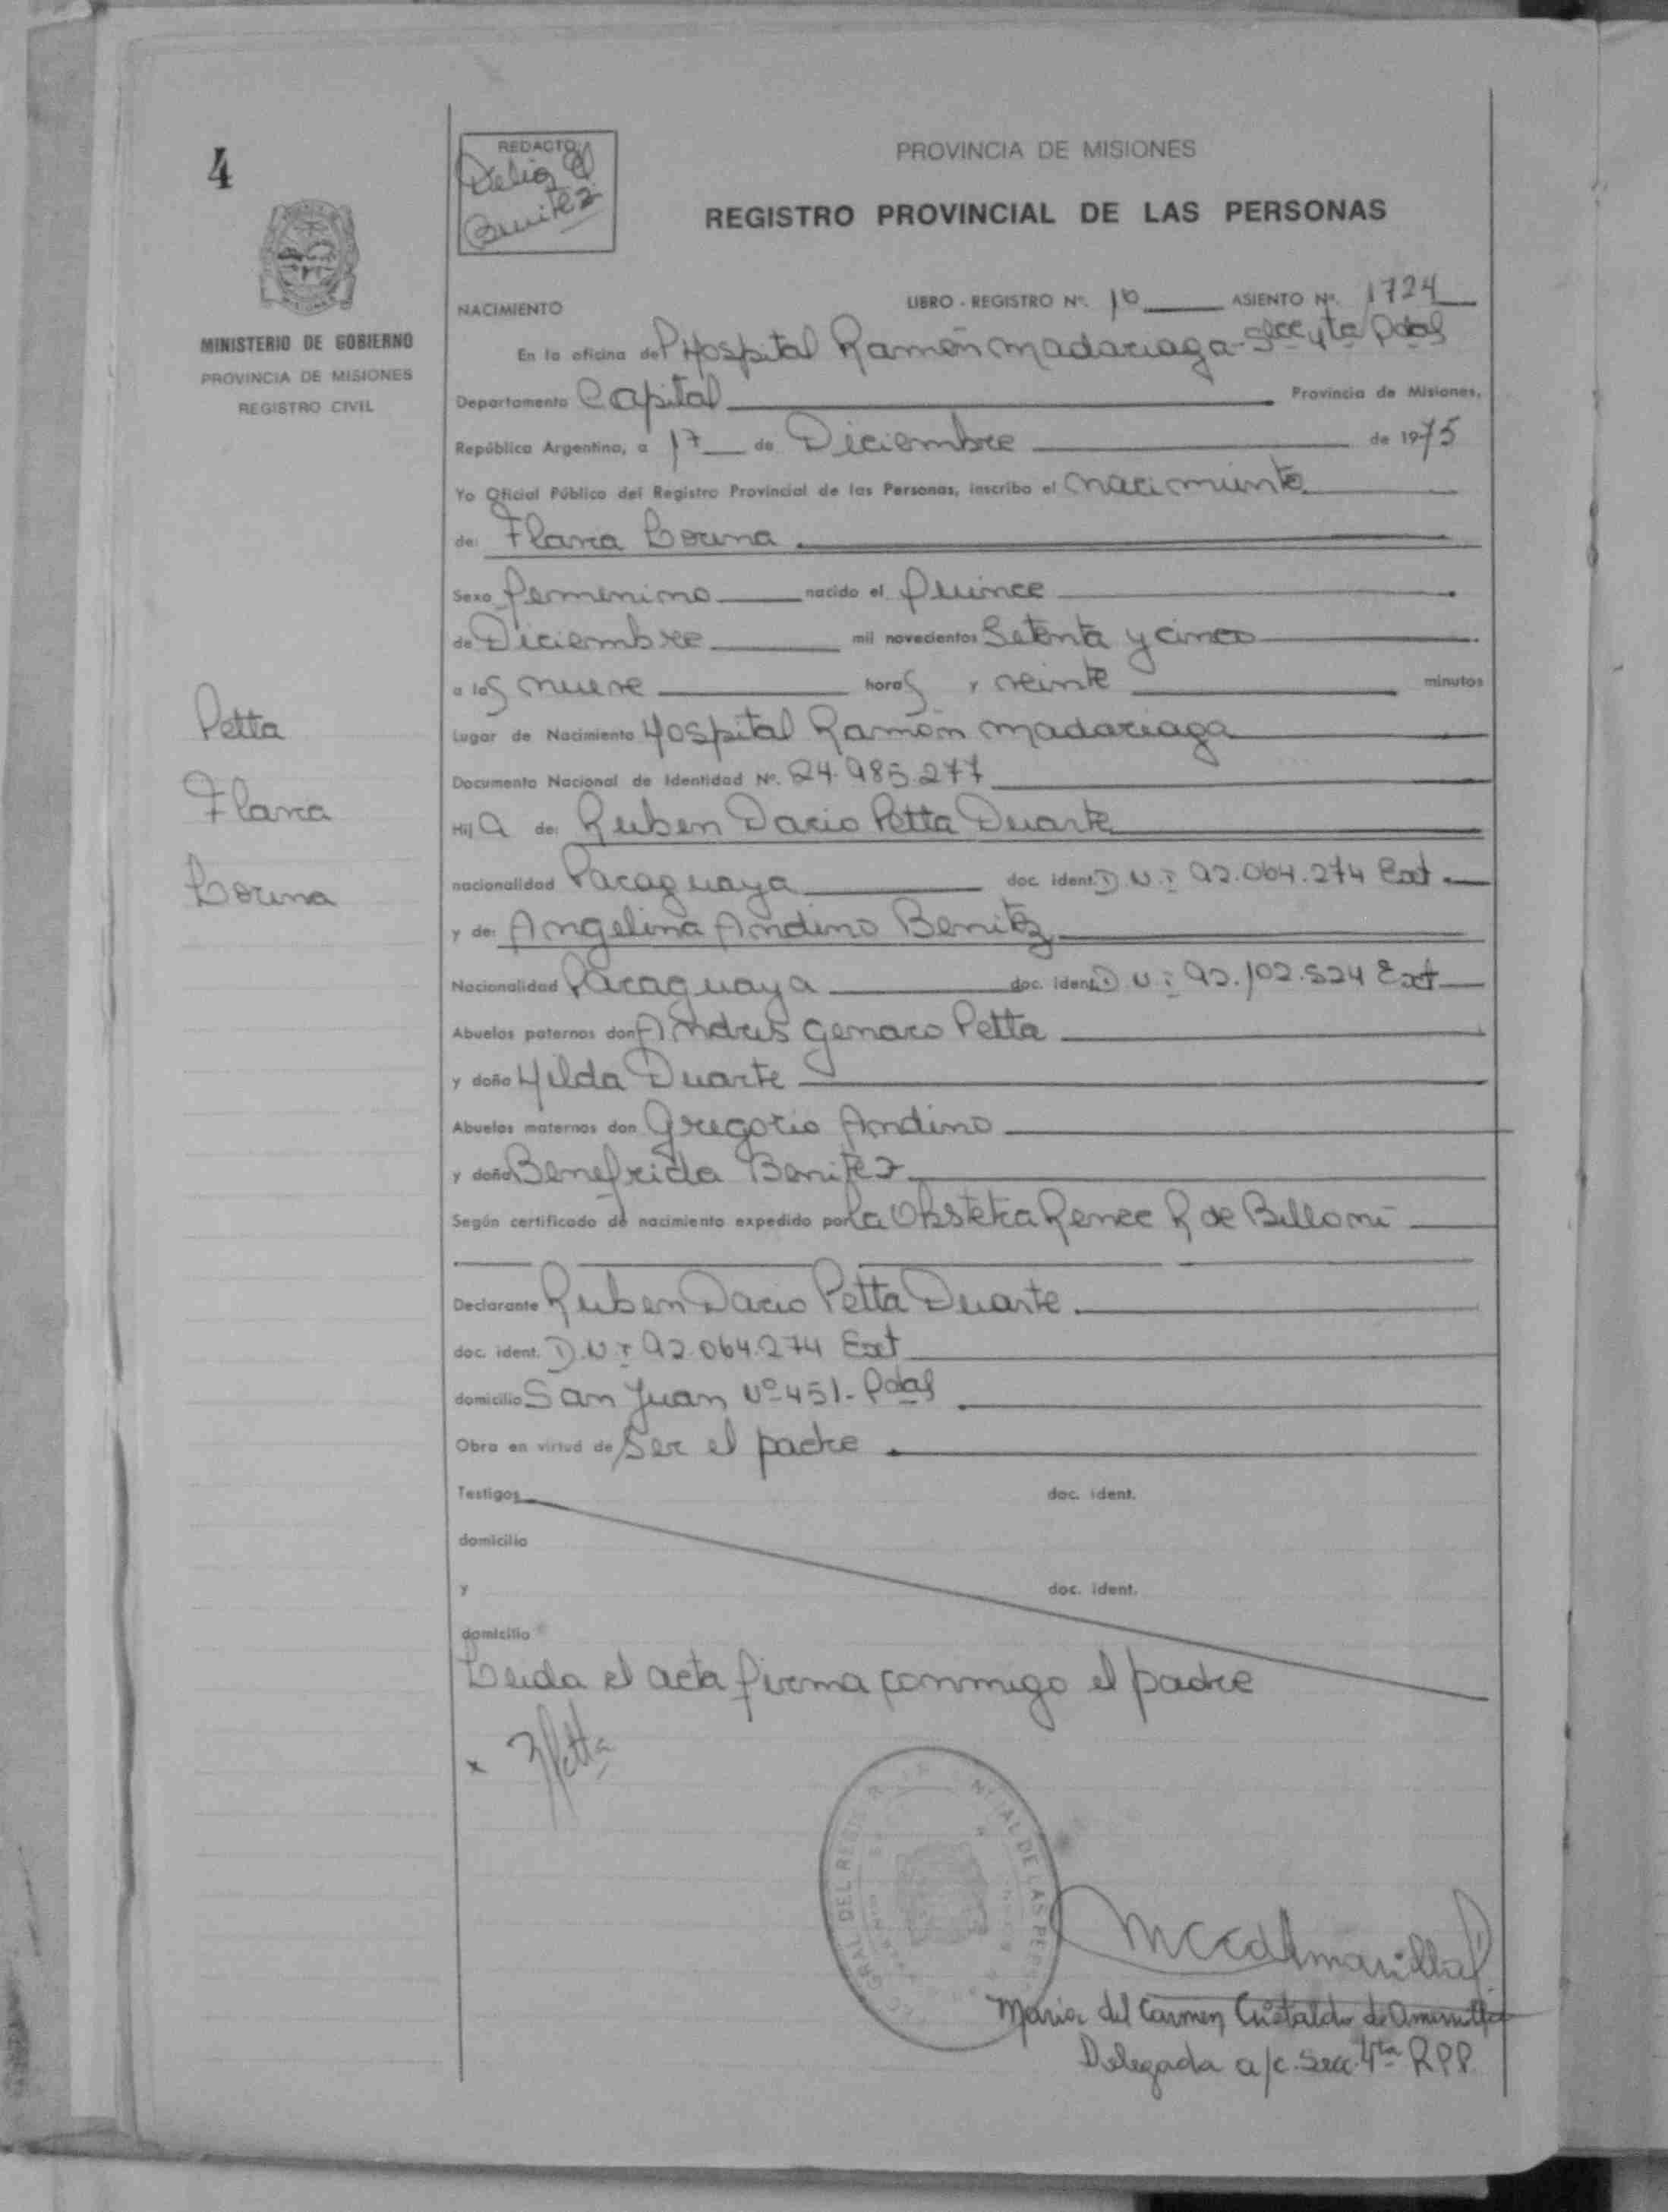 4
REDACTO
Delia
Benitez
PROVINCIA DE MISIONES
REGISTRO PROVINCIAL DE LAS PERSONAS
NACIMIENTO
LIBRO - REGISTRO Nº. 10 ASIENTO Nº. 1724
MINISTERIO DE GOBIERNO
PROVINCIA DE MISIONES
REGISTRO CIVIL
En la oficina del Hospital Ramón Madariaga - Secc 4ta Pdas
Departamento Capital Provincia de Misiones,
República Argentina, a 17 de Diciembre de 1975
Yo Oficial Público del Registro Provincial de las Personas, inscribo el Nacimiento
de: Flavia Lorena
Sexo femenino nacido el Quince
de Diciembre mil novecientos Setenta y cinco
a las nueve horas y veinte minutos
Lugar de Nacimiento Hospital Ramón Madariaga
Documento Nacional de Identidad Nº. 24.985.277
Petta
Flavia
Lorena
Hij a de: Ruben Dario Petta Duarte
nacionalidad Paraguaya doc. ident. D.N.I 92.064.274 Ext.
y de: Angelina Andino Benitez
Nacionalidad Paraguaya doc. ident. D.N.I 92.102.524 Ext
Abuelos paternos don Andres Genaro Petta
y doña Hilda Duarte
Abuelos maternos don Gregorio Andino
y doña Benefrida Benitez
Según certificado de nacimiento expedido por la Obstetra Renee R de Billoni
Declarante Ruben Dario Petta Duarte
doc. ident. D.N.I 92.064.274 Ext
domicilio San Juan Nº 451 - Pdas
Obra en virtud de Ser el padre
Testigos doc. ident.
domicilio
y doc. ident.
domicilio
Leida el acta firma conmigo el padre
x Petta
GRAL DEL REGIS DE LAS PER
Maria del Carmen Cristaldo de Amarilla
Delegada a/c. Secc. 4ta RPP.